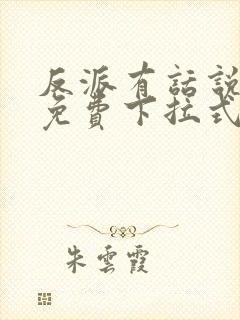 反派有話說
免費下拉式
朱雲霞